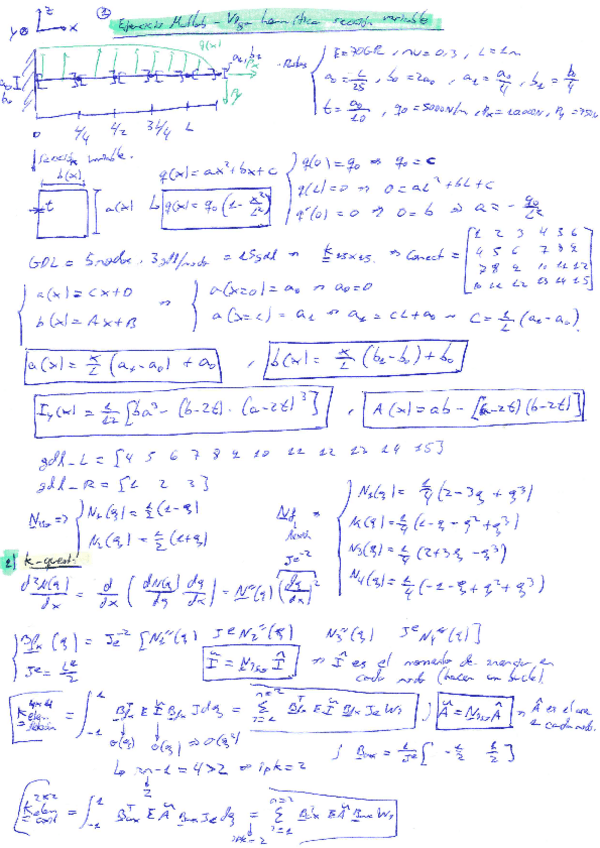 Ejercicio Matlab - Viga hermítica sección variable
z
y x
q(x)
Datos
E = 70GPa, nu = 0,3, L = 2m
a₀ = L/25, b₀ = 2a₀, a₁ = a₀/4, b₁ = b₀/4
t = a₀/10, q₀ = 5000N/m, Px = 1000N, Py = 750N
0 L/4 L/2 3L/4 L
Sección variable.
b(x)
t a(x)
q(x) = ax² + bx + c
q(0) = q₀ ⇒ q₀ = c
q(L) = 0 ⇒ 0 = aL² + bL + c
q'(0) = 0 ⇒ 0 = b ⇒ a = - q₀/L²
q(x) = q₀ (1 - x²/L²)
GDL = 5 nodos, 3 gdl/nodo = 15 gdl ⇒ K 15x15 ⇒ Conect = [1 2 3 4 5 6
4 5 6 7 8 9
7 8 9 10 11 12
10 11 12 13 14 15]
a(x) = Cx + D
b(x) = Ax + B
a(x=0) = a₀ ⇒ a₀ = D
a(x=L) = a₁ ⇒ a₁ = CL + a₀ ⇒ C = 1/L (a₁ - a₀)
a(x) = x/L (a₁ - a₀) + a₀ , b(x) = x/L (b₁ - b₀) + b₀
Iy(x) = 1/12 [ba³ - (b-2t) · (a-2t)³] , A(x) = ab - [(a-2t)(b-2t)]
gdl_L = [4 5 6 7 8 9 10 11 12 13 14 15]
gdl_R = [1 2 3]
N₁(ξ) = 1/2 (1-ξ)
N₂(ξ) = 1/2 (1+ξ)
N₁(ξ) = 1/4 (2 - 3ξ + ξ³)
N₂(ξ) = 1/4 (1 - ξ - ξ² + ξ³)
N₃(ξ) = 1/4 (2 + 3ξ - ξ³)
N₄(ξ) = 1/4 (-1 - ξ + ξ² + ξ³)
1) K-quest
d²N(ξ)/dx = d/dx (dN(ξ)/dξ dξ/dx) = N''(ξ) (dξ/dx)²
Je⁻²
Bfx (ξ) = Je⁻² [N₁''(ξ) Je N₂''(ξ) N₃''(ξ) Je N₄''(ξ)]
Je = Le/2
Ĩ = N Î ⇒ Î es el momento de inercia en
cada nodo (hacer un bucle).
K 4x4 elem = ∫₋₁¹ Bfxᵀ E Ĩ Bfx J dξ = Σ Bfxᵀ E Ĩ Bfx Je Wi ; Ã = N Â ⇒ Â es el área
cada nodo.
2n-1 = 4 > 2 ⇒ ipk = 2
; Bax = 1/Je [-1/2 1/2]
K 2x2 elem axil = ∫₋₁¹ Baxᵀ E Ã Bax Je dξ = Σ Baxᵀ E Ã Bax Wi
ipk = 2